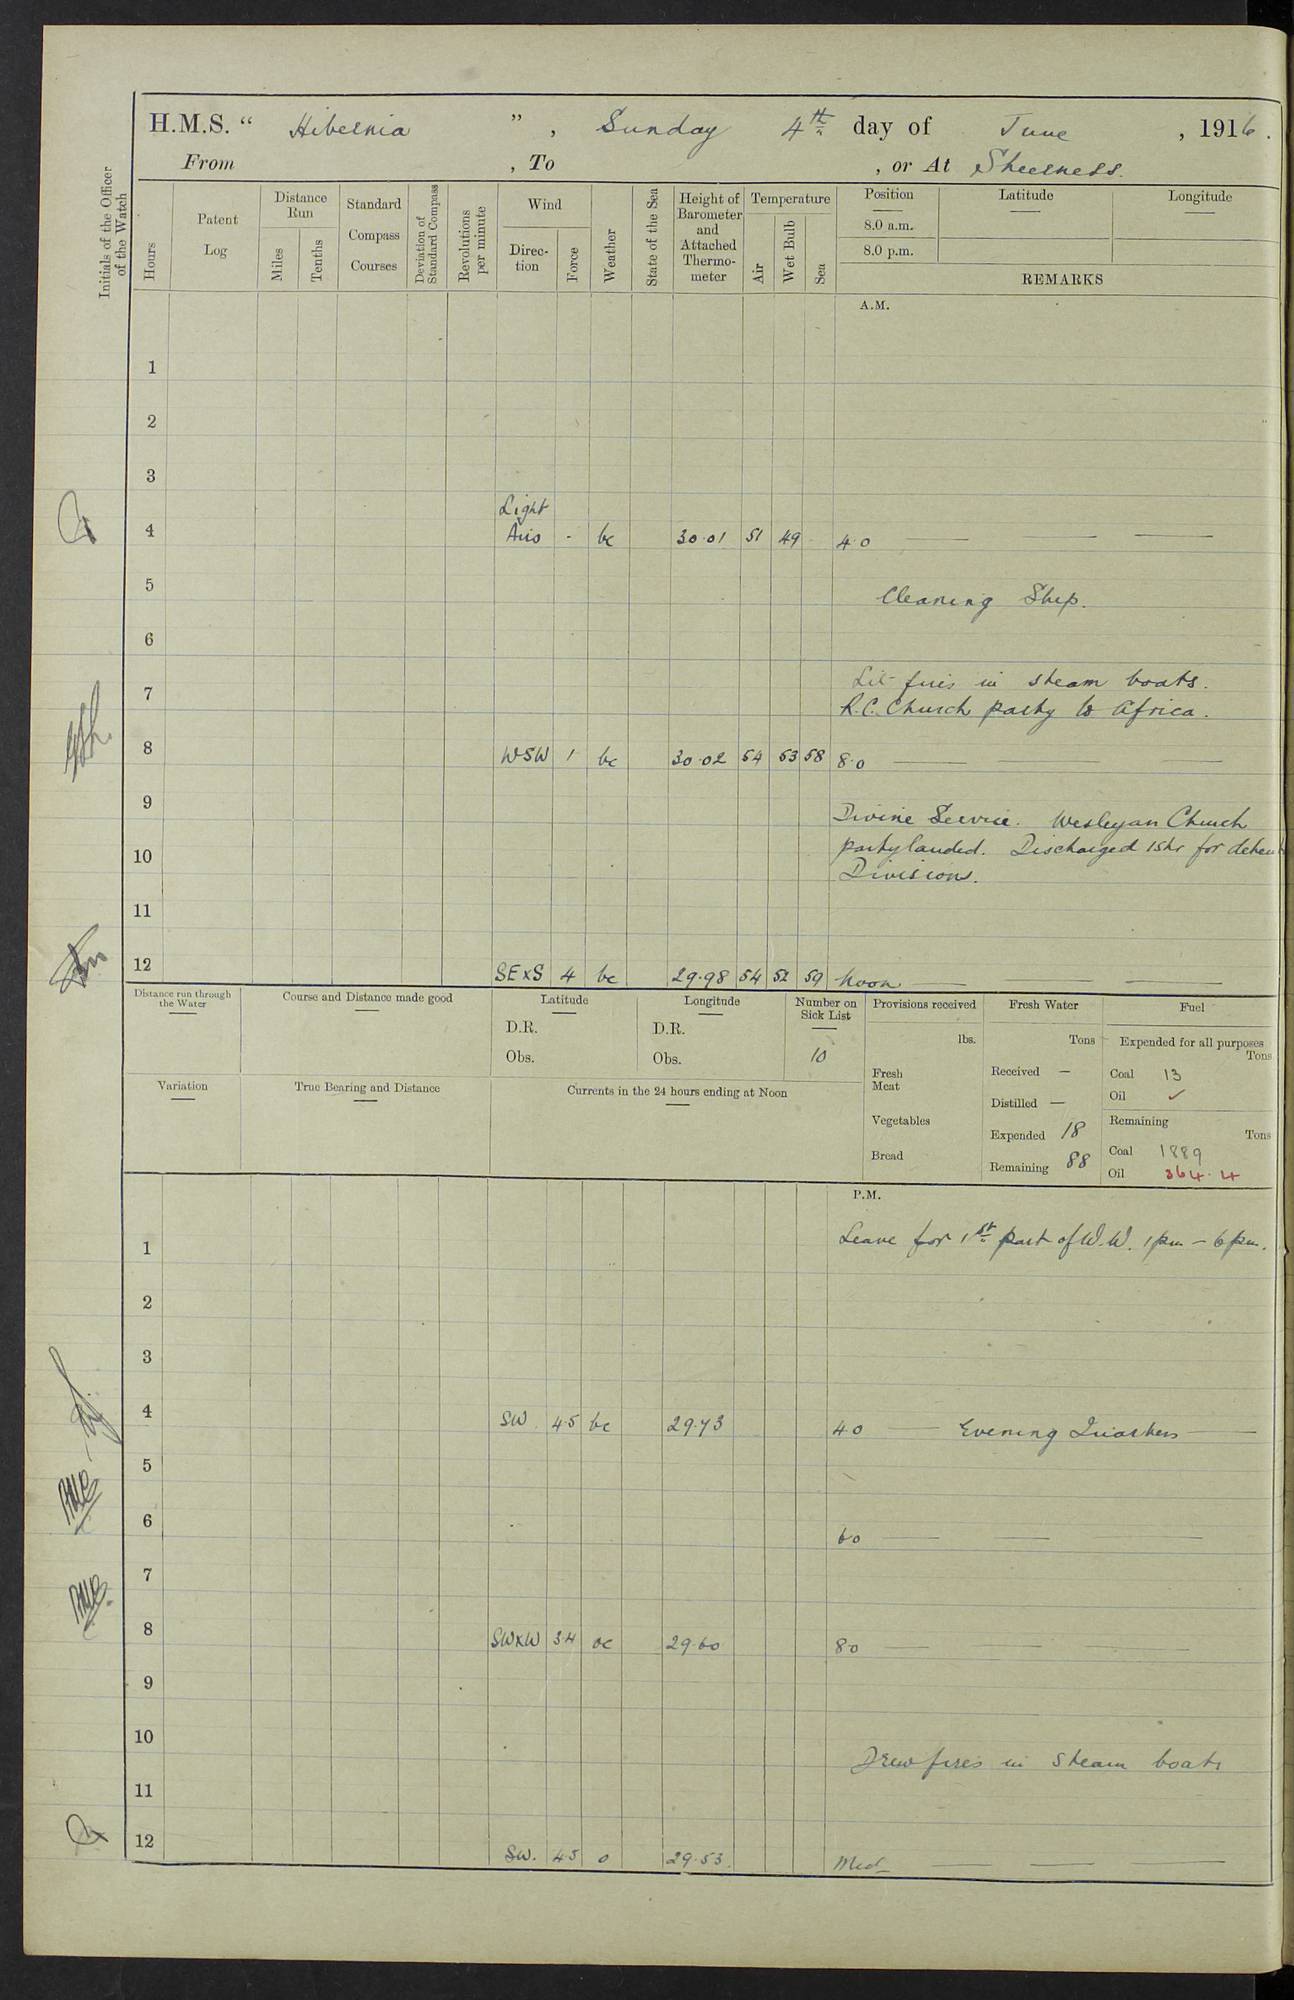 H.M.S. “ Hibernia ” , Sunday 4th day of June , 1916.
From , To , or At Sheerness.
Initials of the Officer of the Watch
Hours
Patent Log
Distance Run
Miles
Tenths
Standard Compass Courses
Deviation of Standard Compass
Revolutions per minute
Wind
Direction
Force
Weather
State of the Sea
Height of Barometer and Attached Thermometer
Temperature
Air
Wet Bulb
Sea
Position
8.0 a.m.
8.0 p.m.
Latitude
Longitude
REMARKS
A.M.
1
2
3
Light
4 Airs - bc 30.01 51 49 4.0
5
Cleaning Ship.
6
Lit fires in steam boats.
7
R.C. Church party to Africa.
8 WSW 1 bc 30.02 54 53 58 8.0
9
Divine Service. Wesleyan Church
10 party landed. Discharged 1 Shr for
Divisions.
11
12 SExS 4 bc 29.98 54 52 59 Noon
Distance run through the Water
Course and Distance made good
Latitude
D.R.
Obs.
Longitude
D.R.
Obs.
Number on Sick List
10
Provisions received
lbs.
Fresh Meat
Vegetables
Bread
Fresh Water
Tons
Received —
Distilled —
Expended 18
Remaining 88
Fuel
Expended for all purposes
Tons
Coal 13
Oil ✓
Remaining
Tons
Coal 1889
Oil 364.4
Variation
True Bearing and Distance
Currents in the 24 hours ending at Noon
P.M.
Leave for 1st part of W.W. 1pm – 6pm.
1
2
3
4 SW 4.5 bc 29.73 4.0 Evening Quarters
5
6 6.0
7
8 SWxW 3.4 oc 29.60 8.0
9
10
Drew fires in steam boats
11
12 SW. 4.5 o 29.53 Mid